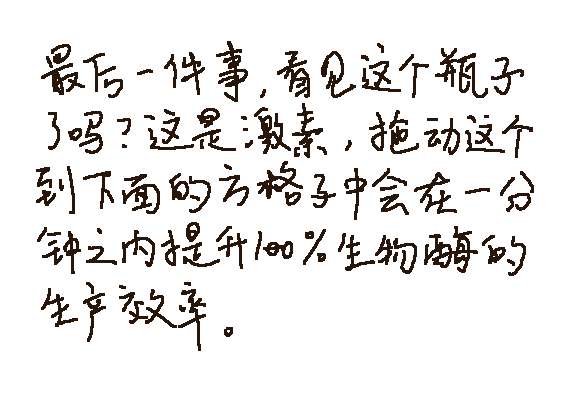 最后一件事,看见这个瓶子
了吗?这是激素,拖动这个
到下面的方格子中会在一分
钟之内提升100%生物酶的
生产效率。